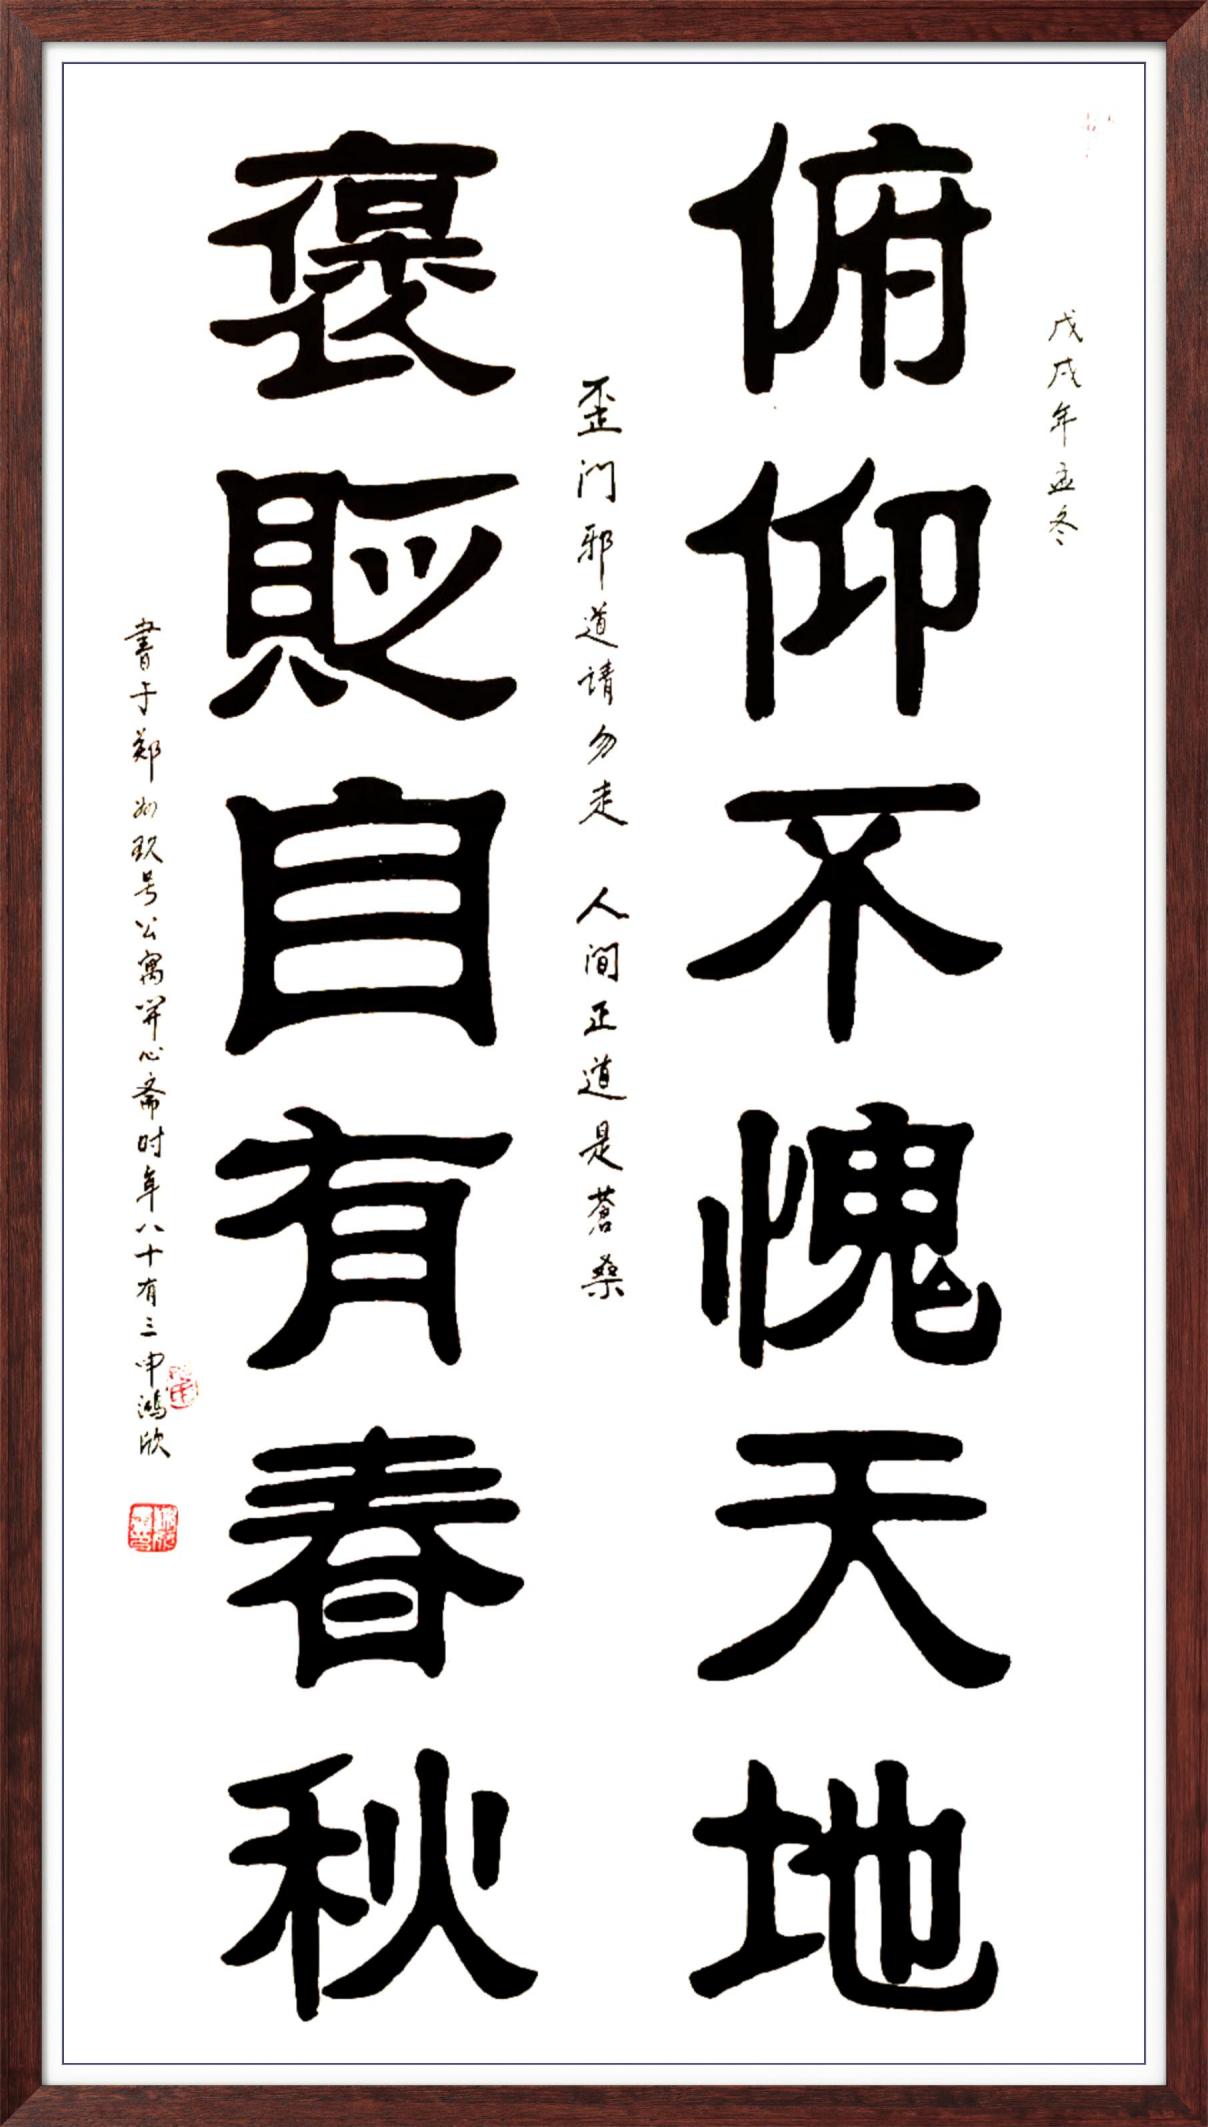 戊戌年孟冬
俯仰不愧天地
歪门邪道请勿走 人间正道是蒼桑
褒貶自有春秋
書于郑州玖号公寓開心斋时年八十有三申鸿欣